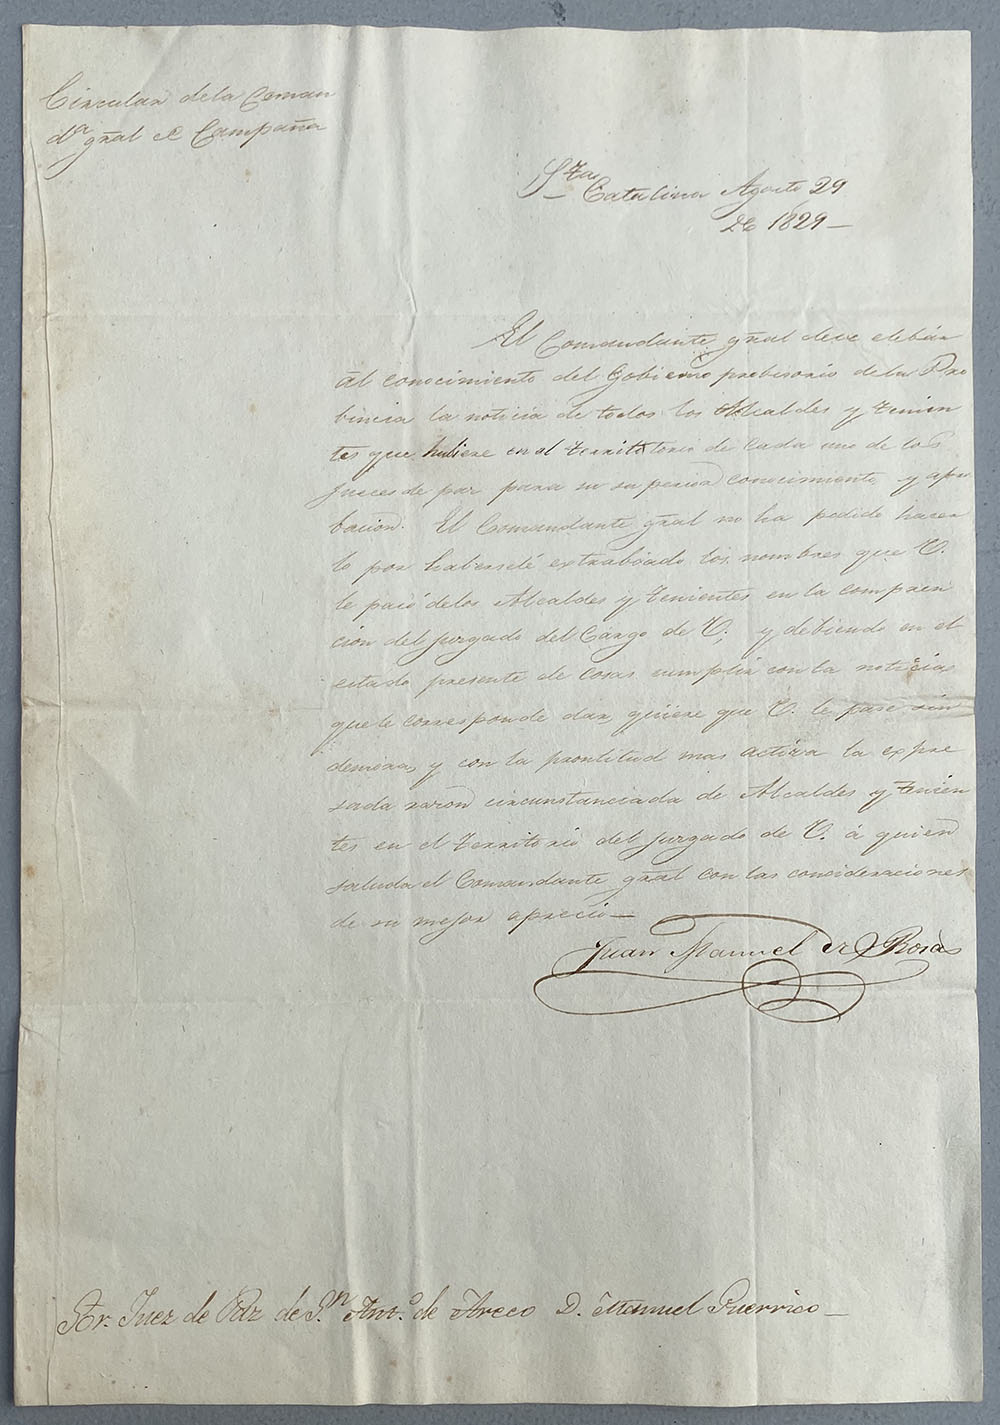 Circular dela Coman
da gral de Campaña
Sta Catalina Agosto 29
de 1829—
El Comandante gral deve elebár
al conocimiento del Gobierno probisorio dela Pro
bincia la noticia de todos los Alcaldes y tenien
tes que hubiere en el territorio de cada uno de los
Jueces de paz para su superior conocimiento y apro
bacion. El Comandante gral no ha podido hacer
lo por habersele extrabiado los nombres que V.
le pasó delos Alcaldes y tenientes en la compren
cion del juzgado del Cargo de V; y debiendo en el
estado presente de cosas cumplir con la noticia
que le corresponde dar, quiere que V. le pase sin
demora, y con la prontitud mas activa la expre
sada razon circunstanciada de Alcaldes y tenien
tes en el territorio del juzgado de V. á quien
saluda el Comandante gral con las concideraciones
de su mejor aprecio—
Juan Manuel de Rosas
Sor. Juez de Paz de Sn. Anto. de Areco D. Manuel Guerrico—